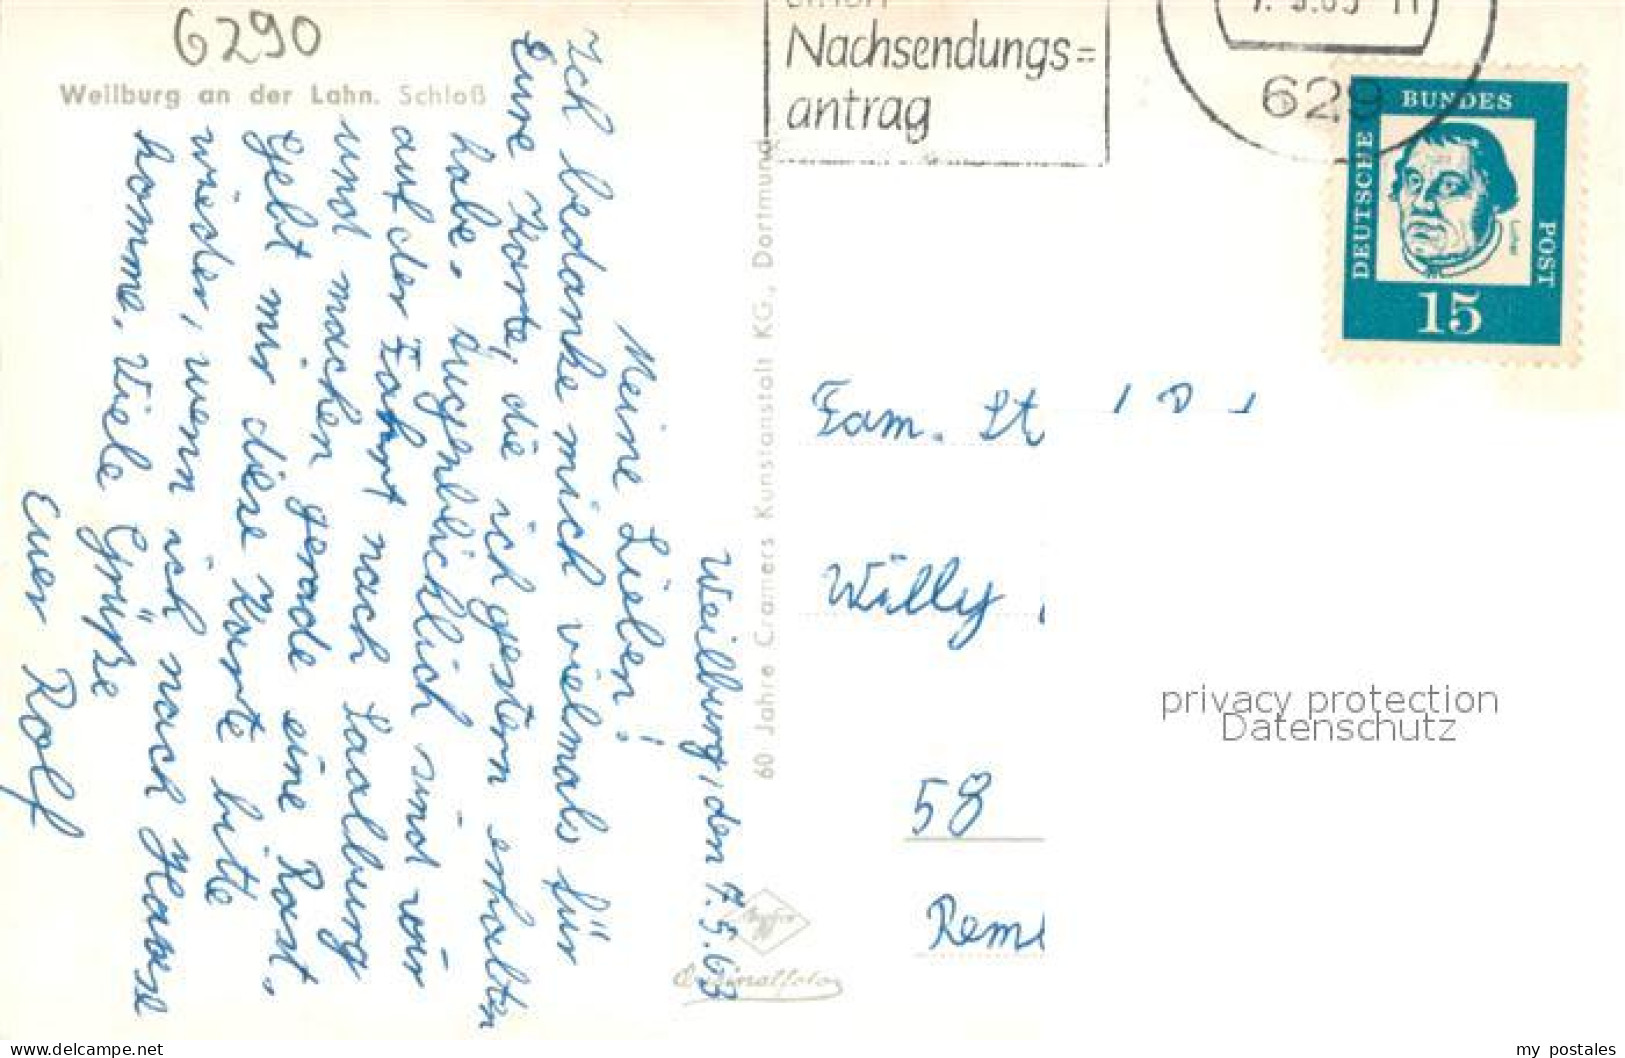 6290
Weilburg an der Lahn. Schloß
Weilburg, den 7.5.63
Meine Lieben!
Ich bedanke mich vielmals für
Eure Karte, die ich gestern erhalten
habe. Augenblicklich sind wir
auf der Fahrt nach Saalburg
und machen gerade eine Rast.
Gebt mir diese Karte bitte
wieder, wenn ich nach Hause
komme. Viele Grüße
Euer Rolf
60 Jahre Cramers Kunstanstalt KG., Dortmund
Originalfoto
Nachsendungs=
antrag
629
DEUTSCHE
BUNDES
POST
Luther
15
Fam. St
Willy
58
privacy protection
Datenschutz
www.delcampe.net
my_postales